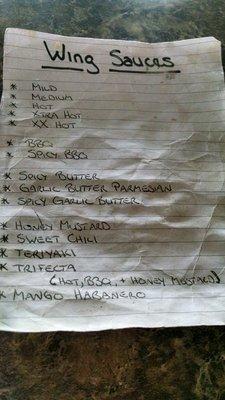 Wing Sauces
* Mild
* Medium
* Hot
* Xtra Hot
* XX Hot
* BBQ
* Spicy BBQ
* Spicy Butter
* Garlic Butter Parmesian
* Spicy Garlic Butter
* Honey Mustard
* Sweet Chili
* Teriyaki
* Trifecta
(Hot, BBQ, + Honey Mustard)
* Mango Habanero